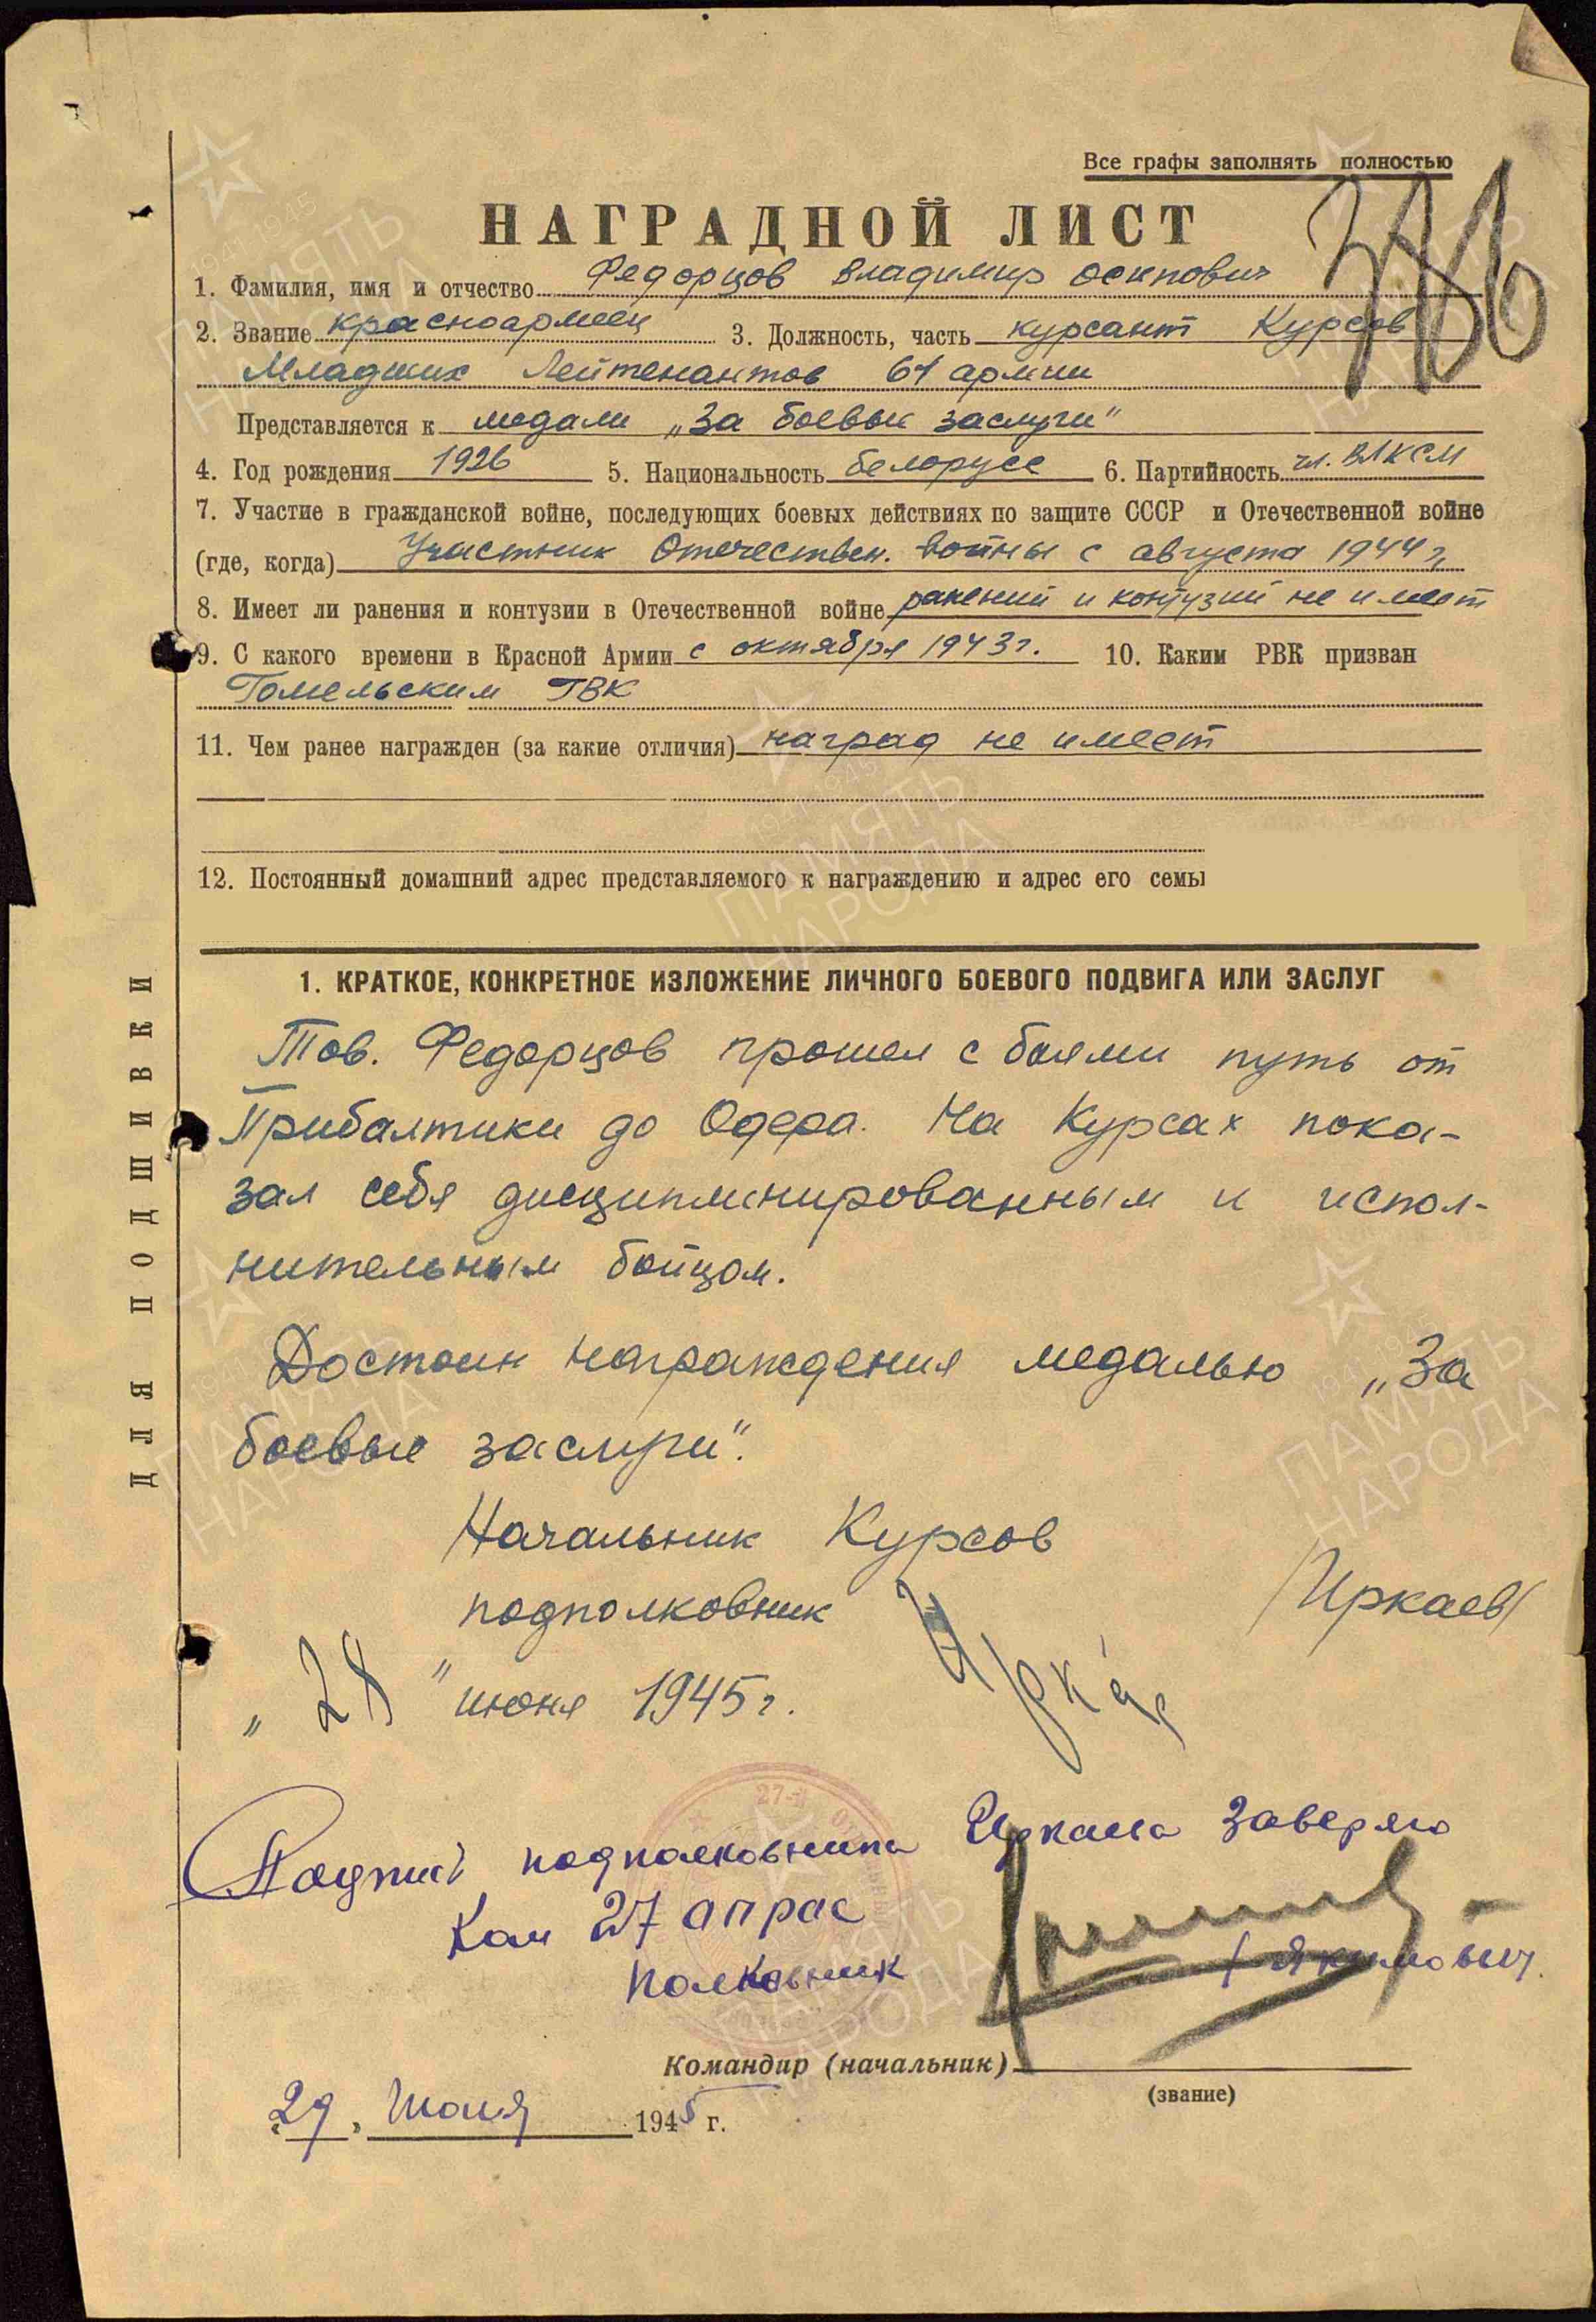 Все графы заполнять полностью
НАГРАДНОЙ ЛИСТ
1. Фамилия, имя и отчество Федорцов Владимир Осипович
2. Звание красноармеец 3. Должность, часть курсант Курсов
Младших Лейтенантов 61 армии
Представляется к медали „За боевые заслуги"
4. Год рождения 1926 5. Национальность белорусс 6. Партийность чл. ВЛКСМ
7. Участие в гражданской войне, последующих боевых действиях по защите СССР и Отечественной войне
(где, когда) Участник Отечествен. войны с августа 1944 г.
8. Имеет ли ранения и контузии в Отечественной войне ранений и контузий не имеет
9. С какого времени в Красной Армии с октября 1943 г. 10. Каким РВК призван
Гомельским ГВК
11. Чем ранее награжден (за какие отличия) наград не имеет
12. Постоянный домашний адрес представляемого к награждению и адрес его семьи
1. КРАТКОЕ, КОНКРЕТНОЕ ИЗЛОЖЕНИЕ ЛИЧНОГО БОЕВОГО ПОДВИГА ИЛИ ЗАСЛУГ
Тов. Федорцов прошел с боями путь от
Прибалтики до Одера. На Курсах пока-
зал себя дисциплинированным и испол-
нительным бойцом.
Достоин награждения медалью „За
боевые заслуги".
Начальник Курсов
подполковник /Иркаев/
„28" июня 1945 г.
Подпись подполковника Иркаева заверяю
Ком 27 апрос
полковник /Якимович
Командир (начальник)
(звание)
„29" Июня 1945 г.
ДЛЯ ПОДШИВКИ
ПАМЯТЬ НАРОДА